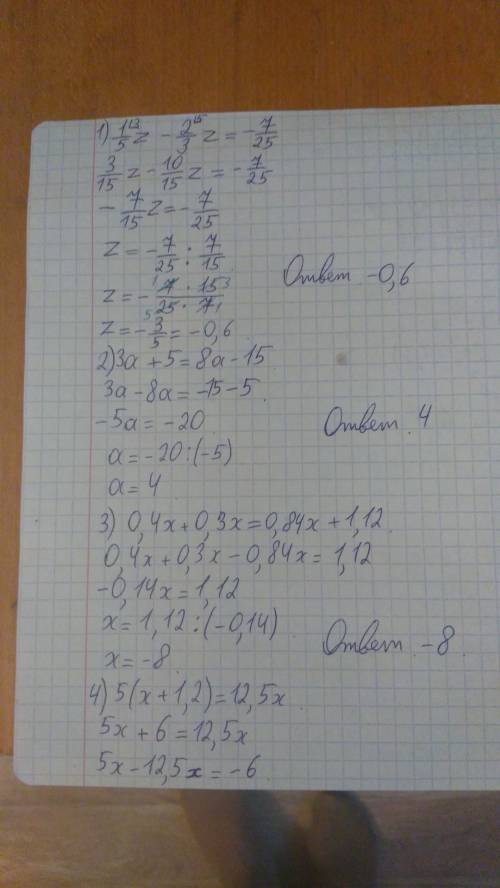 1) 1/5 ^{3} z - 2/3 ^{5} z = - 7/25
3/15 z - 10/15 z = - 7/25
- 7/15 z = - 7/25
z = - 7/25 : 7/15
Ответ -0,6
z = - 7 · 15 / 25 · 7
z = - 3/5 = -0,6
2) 3a + 5 = 8a - 15
3a - 8a = -15 - 5
-5a = -20
Ответ. 4
a = -20 : (-5)
a = 4
3) 0,4x + 0,3x = 0,84x + 1,12
0,4x + 0,3x - 0,84x = 1,12
-0,14x = 1,12
x = 1,12 : (-0,14)
Ответ -8
x = -8
4) 5(x + 1,2) = 12,5x
5x + 6 = 12,5x
5x - 12,5x = -6